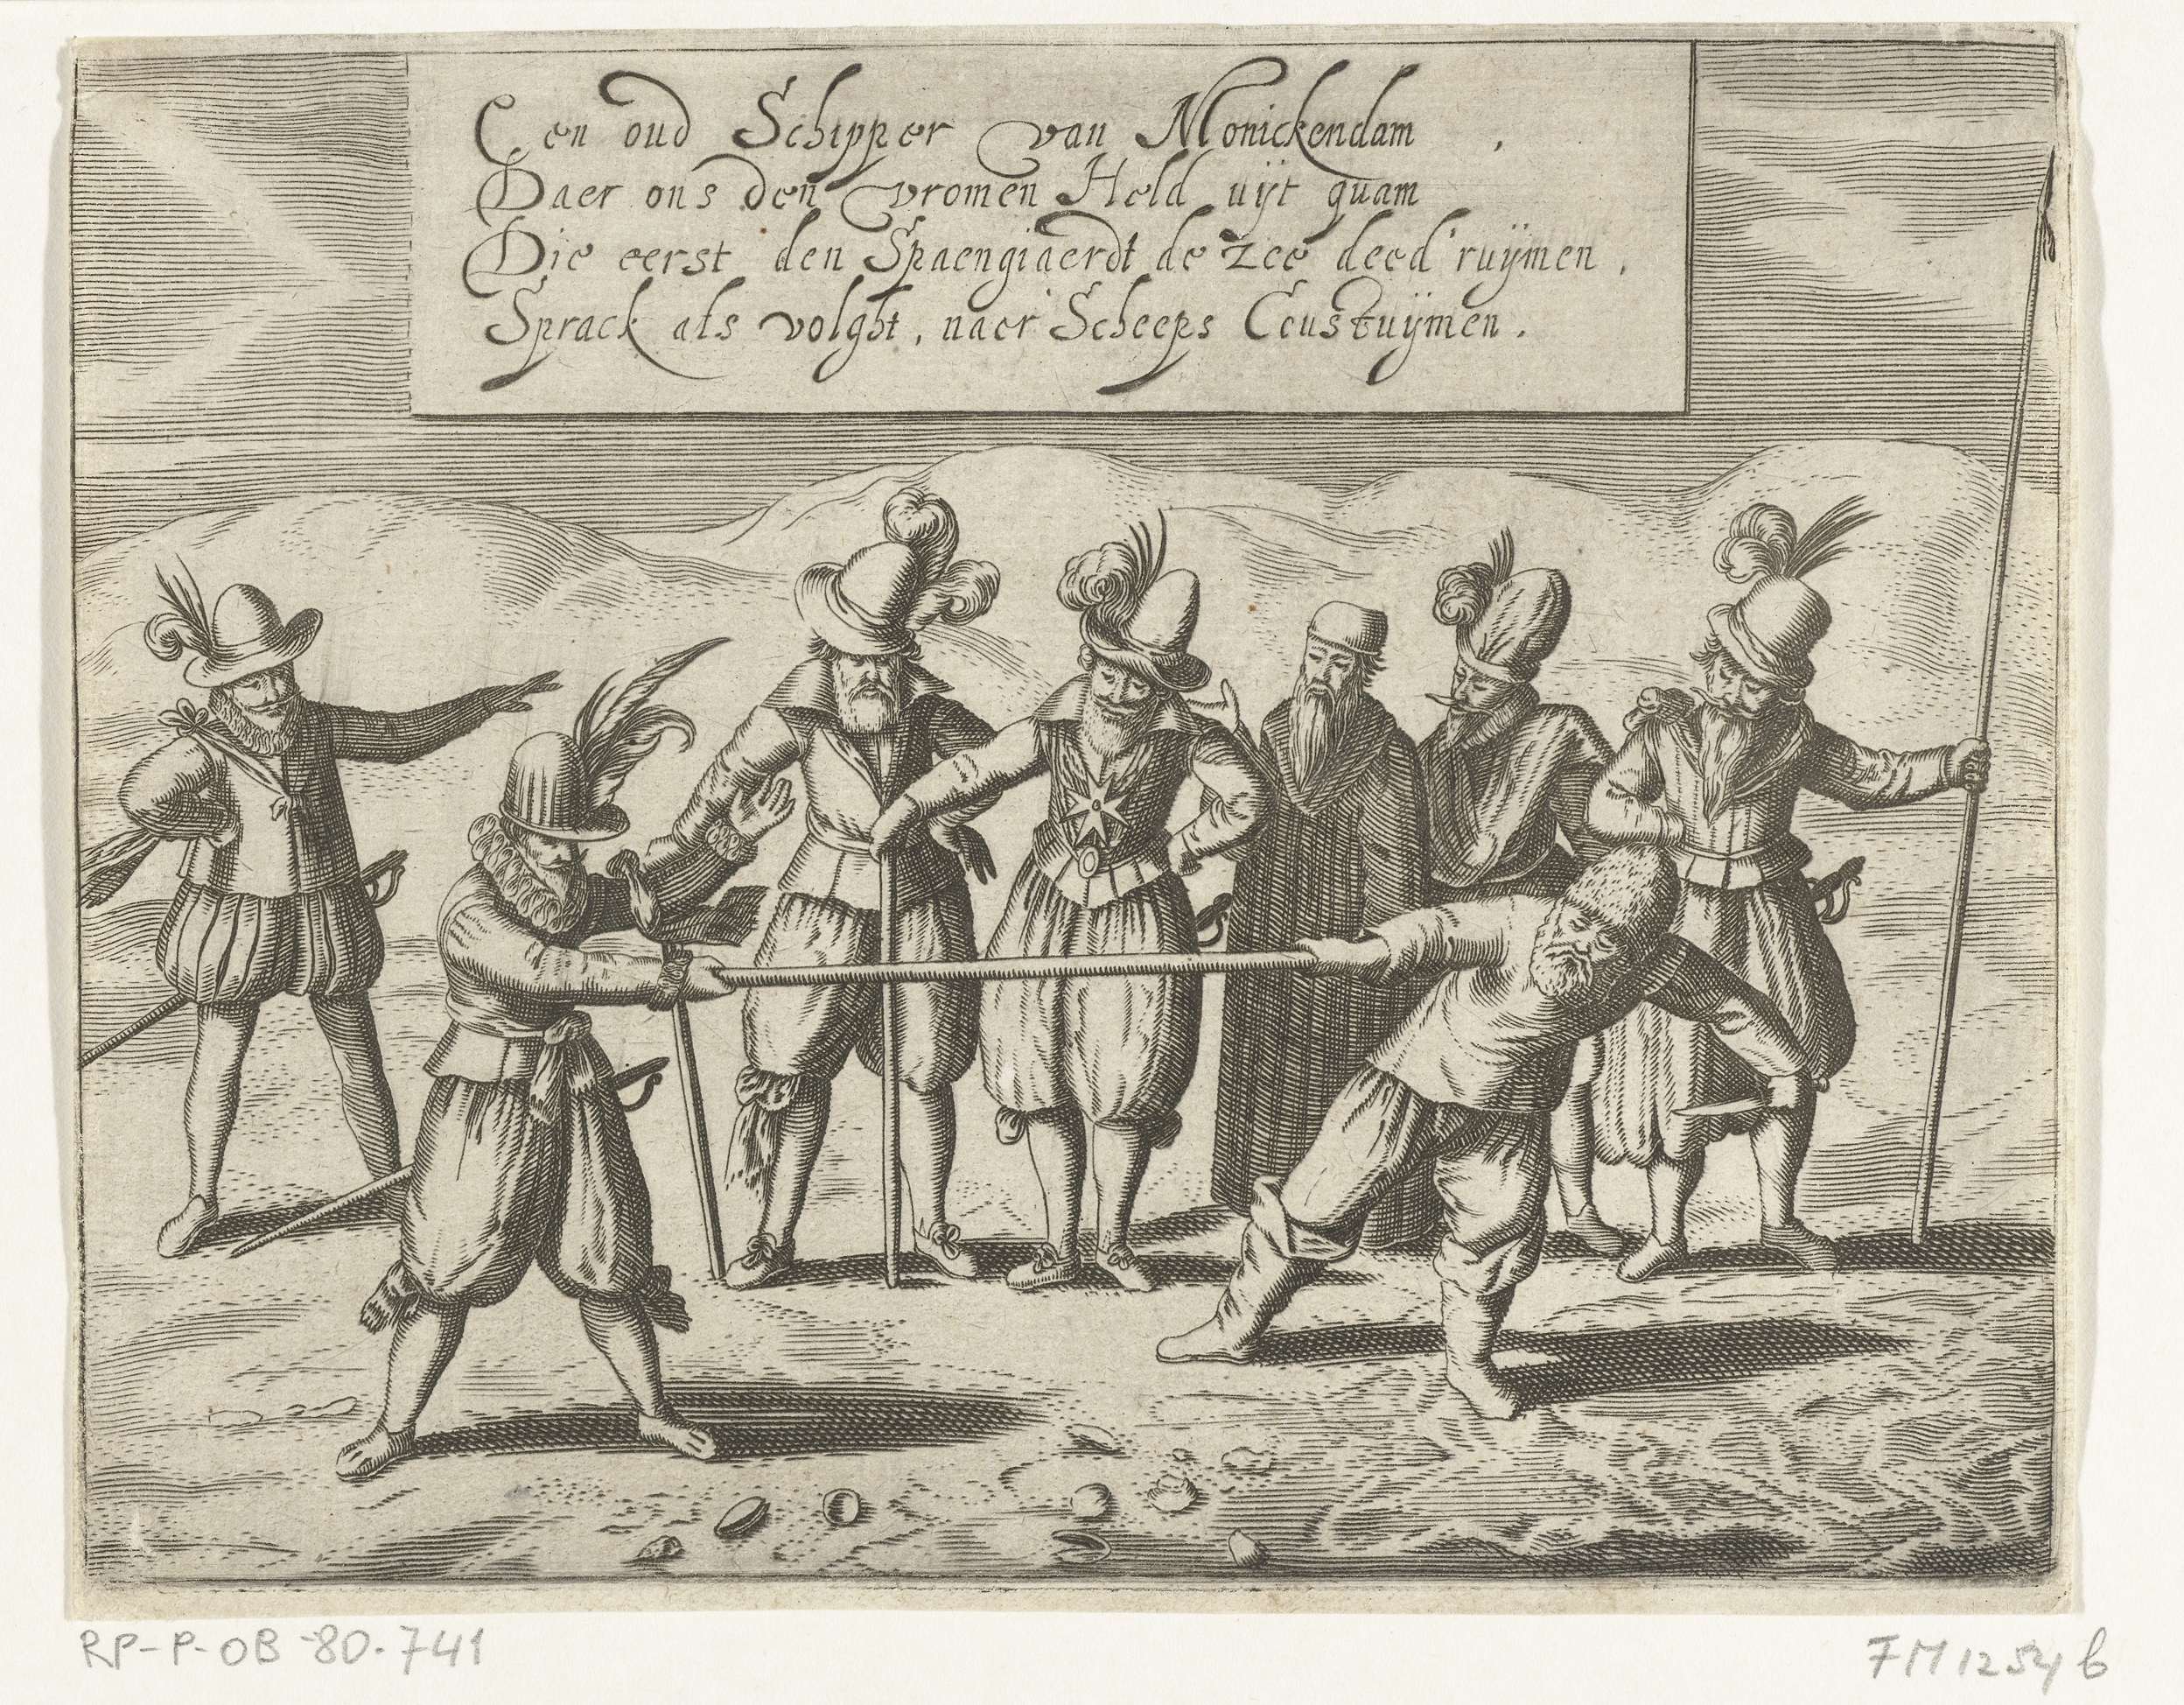 Een oud Schipper van Monickendam,
Daer ons den vromen Held uijt quam
Die eerst den Spaengiaerdt de zee deed' ruijmen,
Sprack als volght, naer Scheeps Ceustuijmen.
RP-P-OB-80.741
FM 1254 b